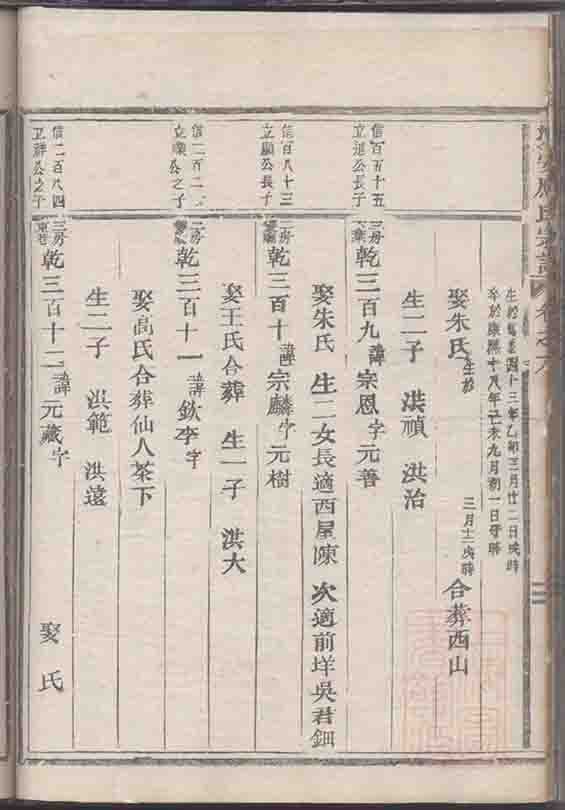 生於萬曆四十三年乙卯三月廿二日戌時
卒於康熙十八年己未九月初一日子時
娶朱氏 生於 三月十二戌時 合葬西山
生二子 洪禎 洪治
信百五十五
立道公長子
三房 乾三百九 諱宗恩 字元善
娶朱氏 生二女長適西屋陳 次適前垟吳君鈿
信百八十三
立顯公長子
二房 乾三百十 諱宗麟 字元樹
娶王氏合葬 生一子 洪大
信二百二
立樂公之子
二房 乾三百十一 諱欽李 字
娶高氏合葬仙人茶下
生二子 洪範 洪遠
信二百八四
立祥公之子
三房 乾三百十二 諱元藏 字 娶 氏